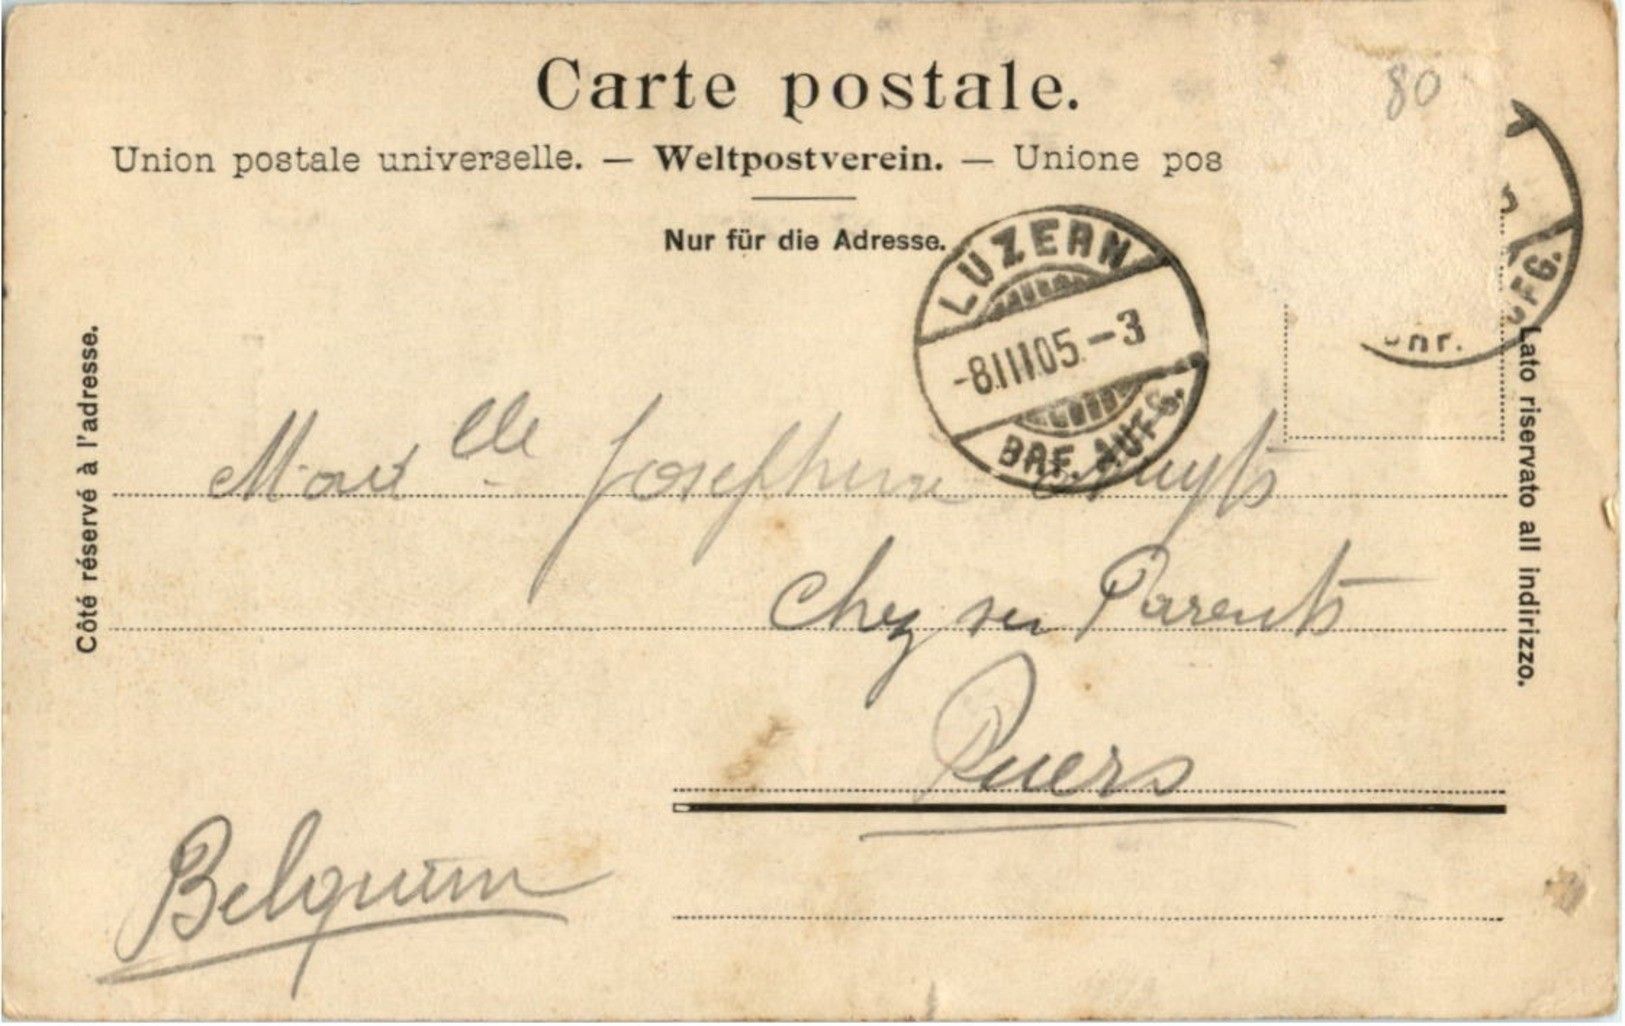 Carte postale.
80
Union postale universelle. — Weltpostverein. — Unione pos
Nur für die Adresse.
LUZERN
-8.III.05.-3
BRF. AUFG.
UFG.
Côté réservé à l'adresse.
Lato riservato all indirizzo.
Mad elle Josephine
Chez ses Parents
Puers
Belgium